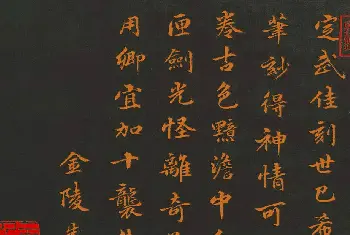 定武佳刻世已希
筆妙得神情可
卷古色黯澹中
匣劍光怪離奇
用卿宜加十襲
金陵